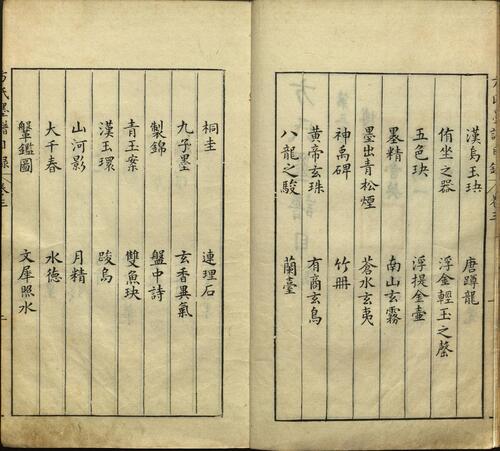 漢烏玉玦 唐蹲龍
侑坐之器 浮金輕玉之磬
五色玦 浮提金壷
墨精 南山玄霧
墨出青松煙 蒼水玄夷
神禹碑 竹冊
黃帝玄珠 有商玄鳥
八龍之駿 蘭臺
桐圭 連理石
九子墨 玄香異氣
製錦 盤中詩
青玉案 雙魚玦
漢玉環 踆烏
山河影 月精
大千春 水德
槃鑑圖 文犀照水
方氏墨譜目錄 卷三